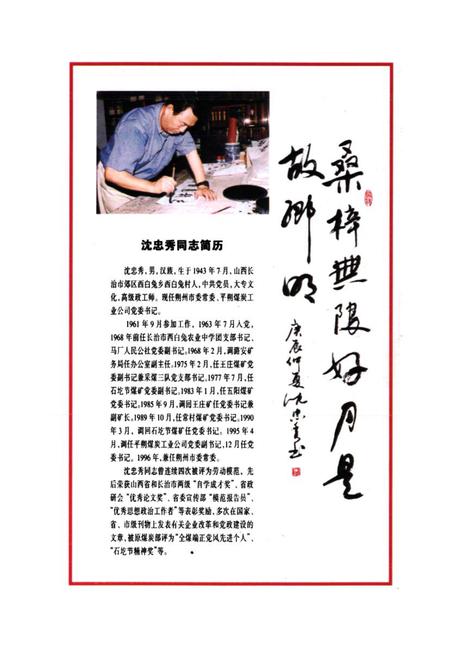 沈忠秀同志简历
沈忠秀，男，汉族，生于1943年7月，山西长
治市郊区西白兔乡西白兔村人，中共党员，大专文
化，高级政工师。现任朔州市委常委、平朔煤炭工
业公司党委书记。
1961年9月参加工作，1963年7月入党，
1968年前任长治市西白兔农业中学团支部书记、
马厂人民公社党委副书记。1968年2月，调潞安矿
务局任办公室副主任。1975年2月，任王庄煤矿党
委副书记兼采煤三队党支部书记。1977年7月，任
石圪节煤矿党委副书记。1983年1月，任五阳煤矿
党委书记。1985年9月，调回王庄矿任党委书记兼
副矿长，1989年10月，任常村煤矿党委书记，1990
年3月，调回石圪节煤矿任党委书记。1995年4
月，调任平朔煤炭工业公司党委副书记，12月任党
委书记。1996年，兼任朔州市委常委。
沈忠秀同志曾连续四次被评为劳动模范，先
后荣获山西省和长治市两级“自学成才奖”、省政
研会“优秀论文奖”、省委宣传部“模范报告员”、
“优秀思想政治工作者”等表彰奖励，多次在国家、
省、市级刊物上发表有关企业改革和党政建设的
文章，被原煤炭部评为“全煤端正党风先进个人”、
“石圪节精神奖”等。
桑梓无限好月是
故乡明
庚辰仲夏沈忠秀书